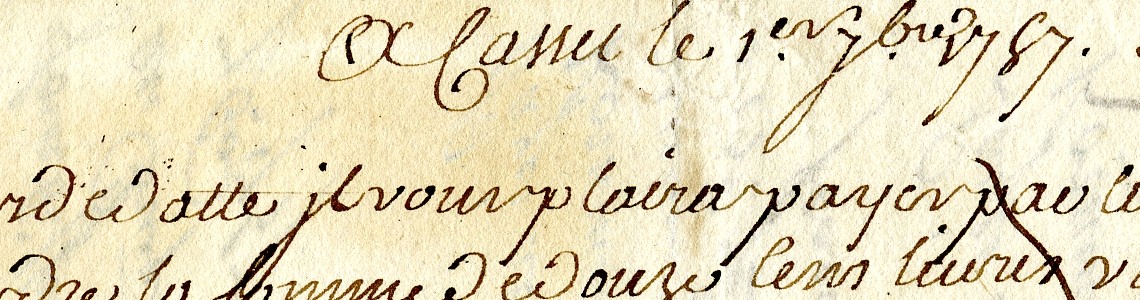 A Cassel le 1er 7bre 1757.
de datte jl vous plaira payer par
la somme de douze Cens liures